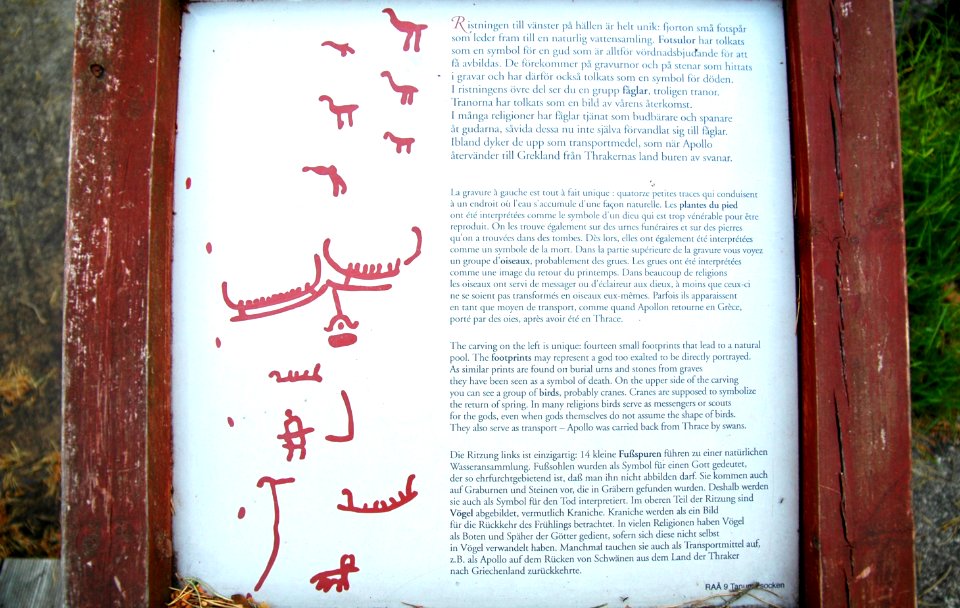 Ristningen till vänster på hällen är helt unik: fjorton små fotspår
som leder fram till en naturlig vattensamling. Fotsulor har tolkats
som en symbol för en gud som är alltför vördnadsbjudande för att
få avbildas. De förekommer på gravurnor och på stenar som hittats
i gravar och har därför också tolkats som en symbol för döden.
I ristningens övre del ser du en grupp fåglar, troligen tranor.
Tranorna har tolkats som en bild av vårens återkomst.
I många religioner har fåglar tjänat som budbärare och spanare
åt gudarna, såvida dessa nu inte själva förvandlat sig till fåglar.
Ibland dyker de upp som transportmedel, som när Apollo
återvänder till Grekland från Thrakernas land buren av svanar.
La gravure à gauche est tout à fait unique : quatorze petites traces qui conduisent
à un endroit où l'eau s'accumule d'une façon naturelle. Les plantes du pied
ont été interprétées comme le symbole d'un dieu qui est trop vénérable pour être
reproduit. On les trouve également sur des urnes funéraires et sur des pierres
qu'on a trouvées dans des tombes. Dès lors, elles ont également été interprétées
comme un symbole de la mort. Dans la partie supérieure de la gravure vous voyez
un groupe d'oiseaux, probablement des grues. Les grues ont été interprétées
comme une image du retour du printemps. Dans beaucoup de religions
les oiseaux ont servi de messager ou d'éclaireur aux dieux, à moins que ceux-ci
ne se soient pas transformés en oiseaux eux-mêmes. Parfois ils apparaissent
en tant que moyen de transport, comme quand Apollon retourne en Grèce,
porté par des oies, après avoir été en Thrace.
The carving on the left is unique: fourteen small footprints that lead to a natural
pool. The footprints may represent a god too exalted to be directly portrayed.
As similar prints are found on burial urns and stones from graves
they have been seen as a symbol of death. On the upper side of the carving
you can see a group of birds, probably cranes. Cranes are supposed to symbolize
the return of spring. In many religions birds serve as messengers or scouts
for the gods, even when gods themselves do not assume the shape of birds.
They also serve as transport – Apollo was carried back from Thrace by swans.
Die Ritzung links ist einzigartig: 14 kleine Fußspuren führen zu einer natürlichen
Wasseransammlung. Fußsohlen wurden als Symbol für einen Gott gedeutet,
der so ehrfurchtgebietend ist, daß man ihn nicht abbilden darf. Sie kommen auch
auf Graburnen und Steinen vor, die in Gräbern gefunden wurden. Deshalb werden
sie auch als Symbol für den Tod interpretiert. Im oberen Teil der Ritzung sind
Vögel abgebildet, vermutlich Kraniche. Kraniche werden als ein Bild
für die Rückkehr des Frühlings betrachtet. In vielen Religionen haben Vögel
als Boten und Späher der Götter gedient, sofern sich diese nicht selbst
in Vögel verwandelt haben. Manchmal tauchen sie auch als Transportmittel auf,
z.B. als Apollo auf dem Rücken von Schwänen aus dem Land der Thraker
nach Griechenland zurückkehrte.
RAÄ 9